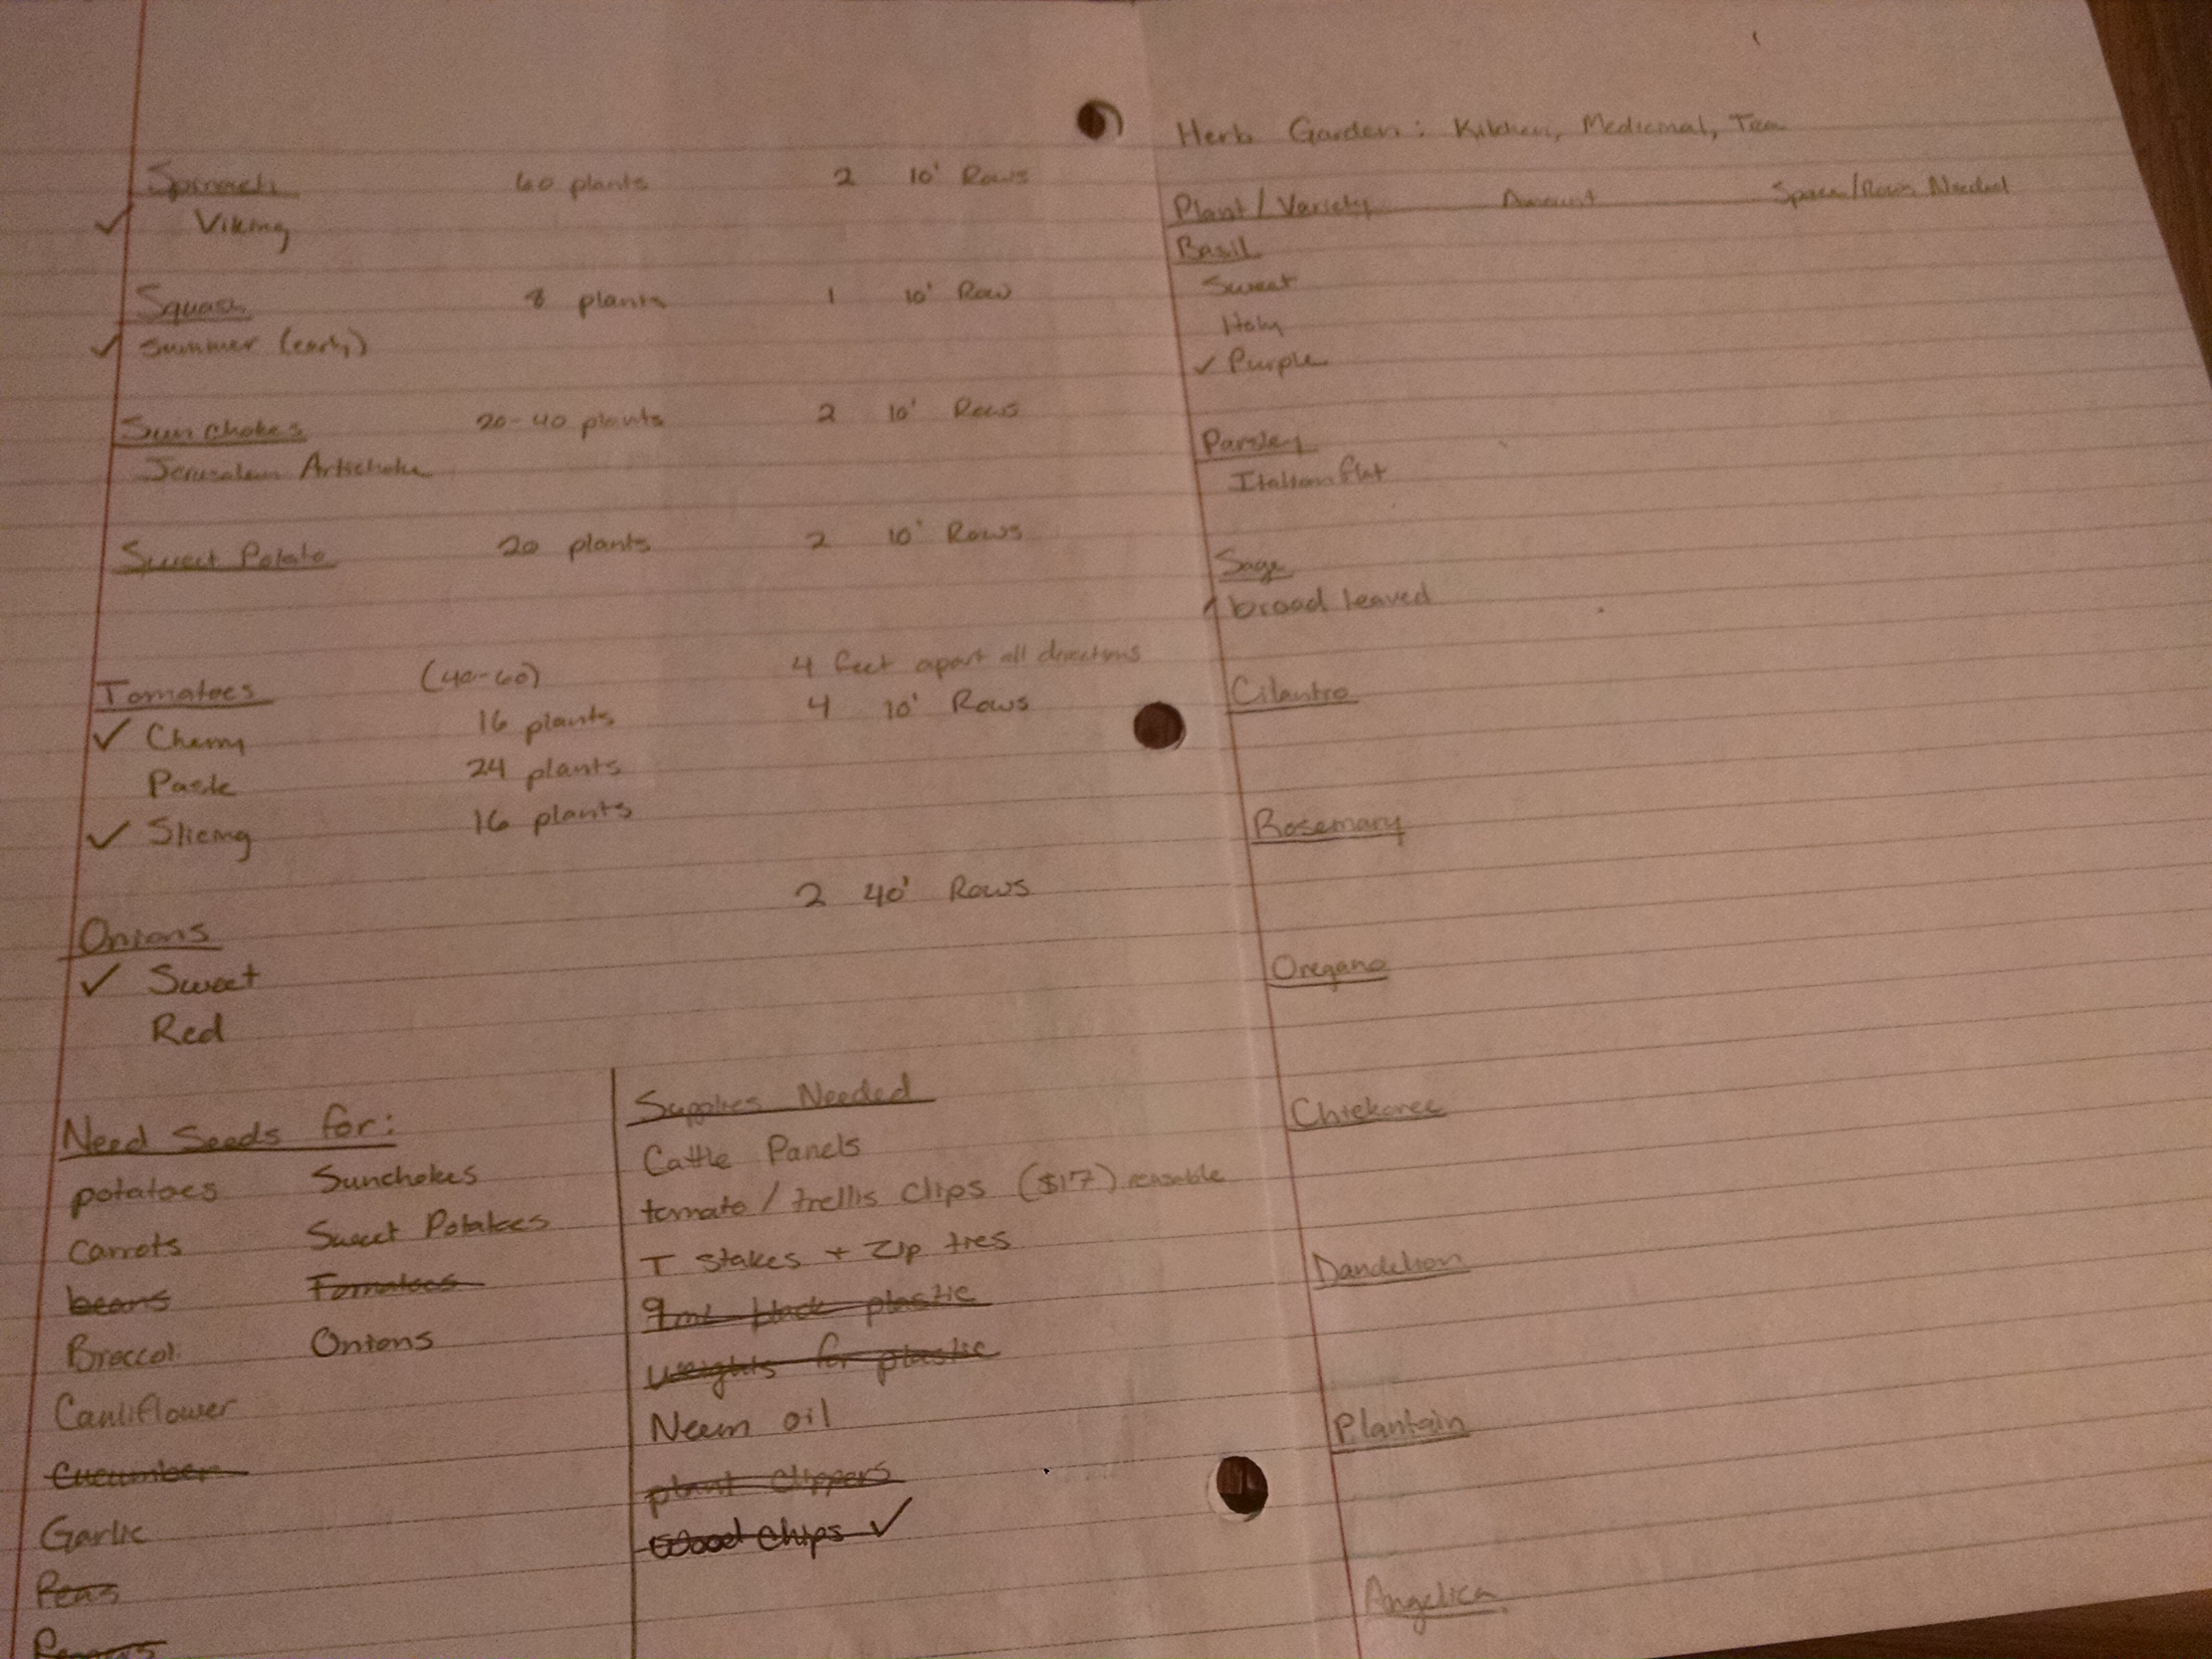 Spinach 60 plants 2 10' Rows
✓ Viking
Squash 8 plants 1 10' Row
✓ Summer (early)
Sunchokes 20-40 plants 2 10' Rows
Jerusalem Artichoke
Sweet Potato 20 plants 2 10' Rows
Tomatoes (40-60) 4 feet apart all directions
✓ Cherry 16 plants 4 10' Rows
Paste 24 plants
✓ Slicing 16 plants
2 40' Rows
Onions
✓ Sweet
Red
Need Seeds for:
potatoes Sunchokes
carrots Sweet Potatoes
beans Tomatoes
Broccoli Onions
Cauliflower
Cucumber
Garlic
Peas
Supplies Needed
Cattle Panels
tomato / trellis clips ($17) reusable
T Stakes + Zip ties
9mL black plastic
weights for plastic
Neem oil
plant clippers
Wood chips ✓
Herb Garden: Kitchen, Medicinal, Tea
Plant / Variety Amount Space/Rows Needed
Basil
Sweet
Holy
✓ Purple
Parsley
Italian flat
Sage
✓ broad leaved
Cilantro
Rosemary
Oregano
Chickoree
Dandelion
Plantain
Angelica